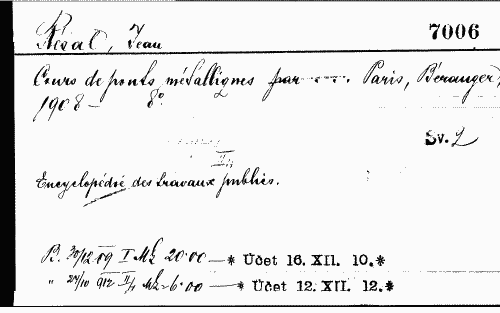 Résal, Jean 7006
Cours de ponts métalliques par .... Paris, Béranger,
1908 – 8º
Sv. 2
II/1
Encyclopédie des travaux publics.
B. 30/12 09 I Mk 20·00 — * Účet 16. XII. 10.*
" 24/10 912 II/1 Mk 6·00 — * Účet 12. XII. 12.*